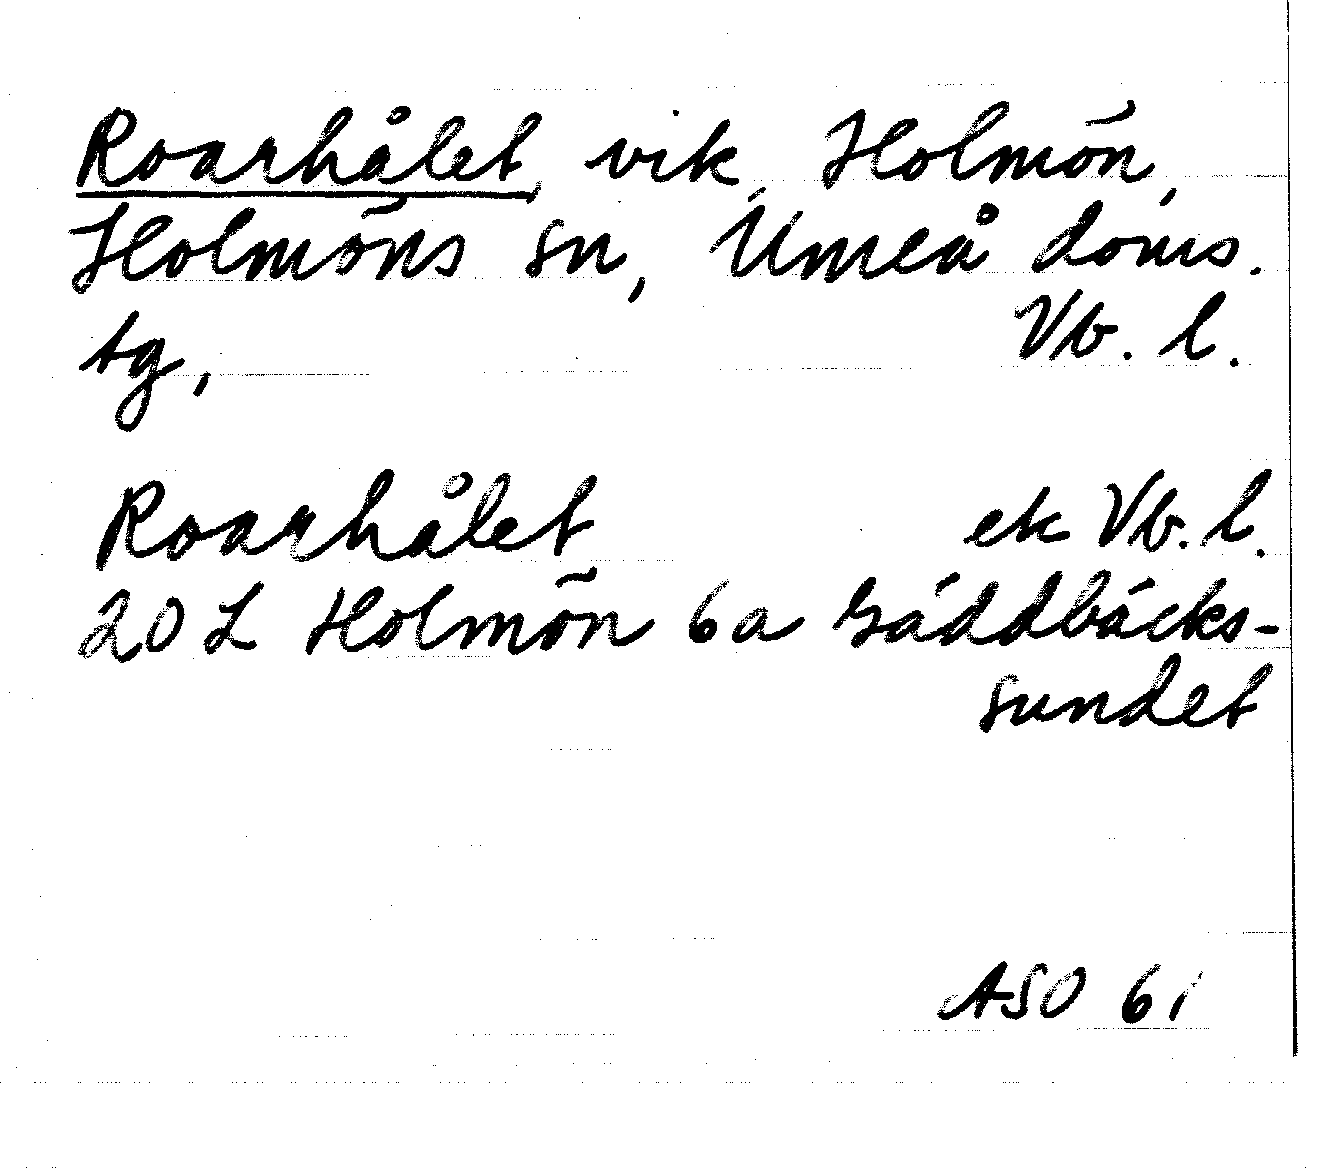 Roarhålet, vik, Holmön,
Holmöns sn, Umeå doms.
tg, Vb. l.
Roarhålet ek Vb. l.
20 L Holmön 6a Gäddbäcks-
sundet
ASO 61